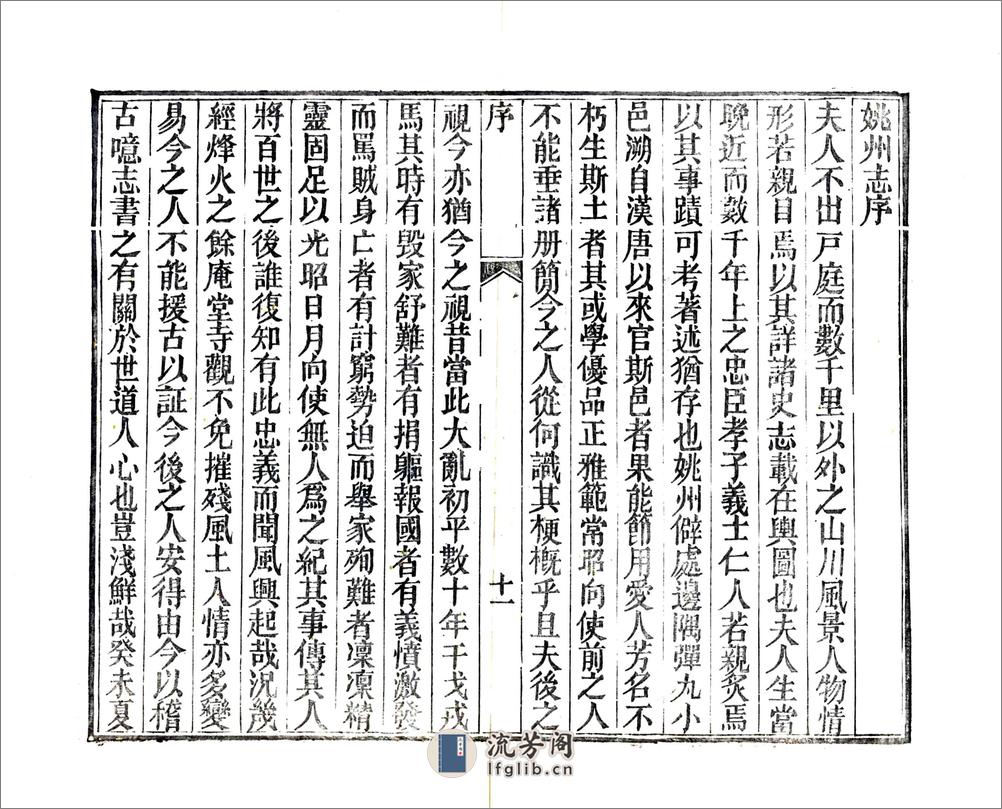 姚州志序
夫人不出戸庭而數千里以外之山川風景人物情
形若親目焉以其詳諸史志載在輿圖也夫人生當
晚近而數千年上之忠臣孝子義士仁人若親炙焉
以其事蹟可考著述猶存也姚州僻處邊隅彈丸小
邑溯自漢唐以來官斯邑者果能節用愛人芳名不
朽生斯土者其或學優品正雅範常昭向使前之人
不能垂諸册簡今之人從何識其梗概乎且夫後之
序
十一
視今亦猶今之視昔當此大亂初平數十年干戈戎
馬其時有毀家舒難者有捐軀報國者有義憤激發
而罵賊身亡者有計窮勢迫而舉家殉難者凜凜精
靈固足以光昭日月向使無人爲之紀其事傳其人
將百世之後誰復知有此忠義而聞風興起哉況幾
經烽火之餘庵堂寺觀不免摧殘風土人情亦多變
易今之人不能援古以証今後之人安得由今以稽
古噫志書之有關於世道人心也豈淺鮮哉癸未夏
流芳阁
lfglib.cn